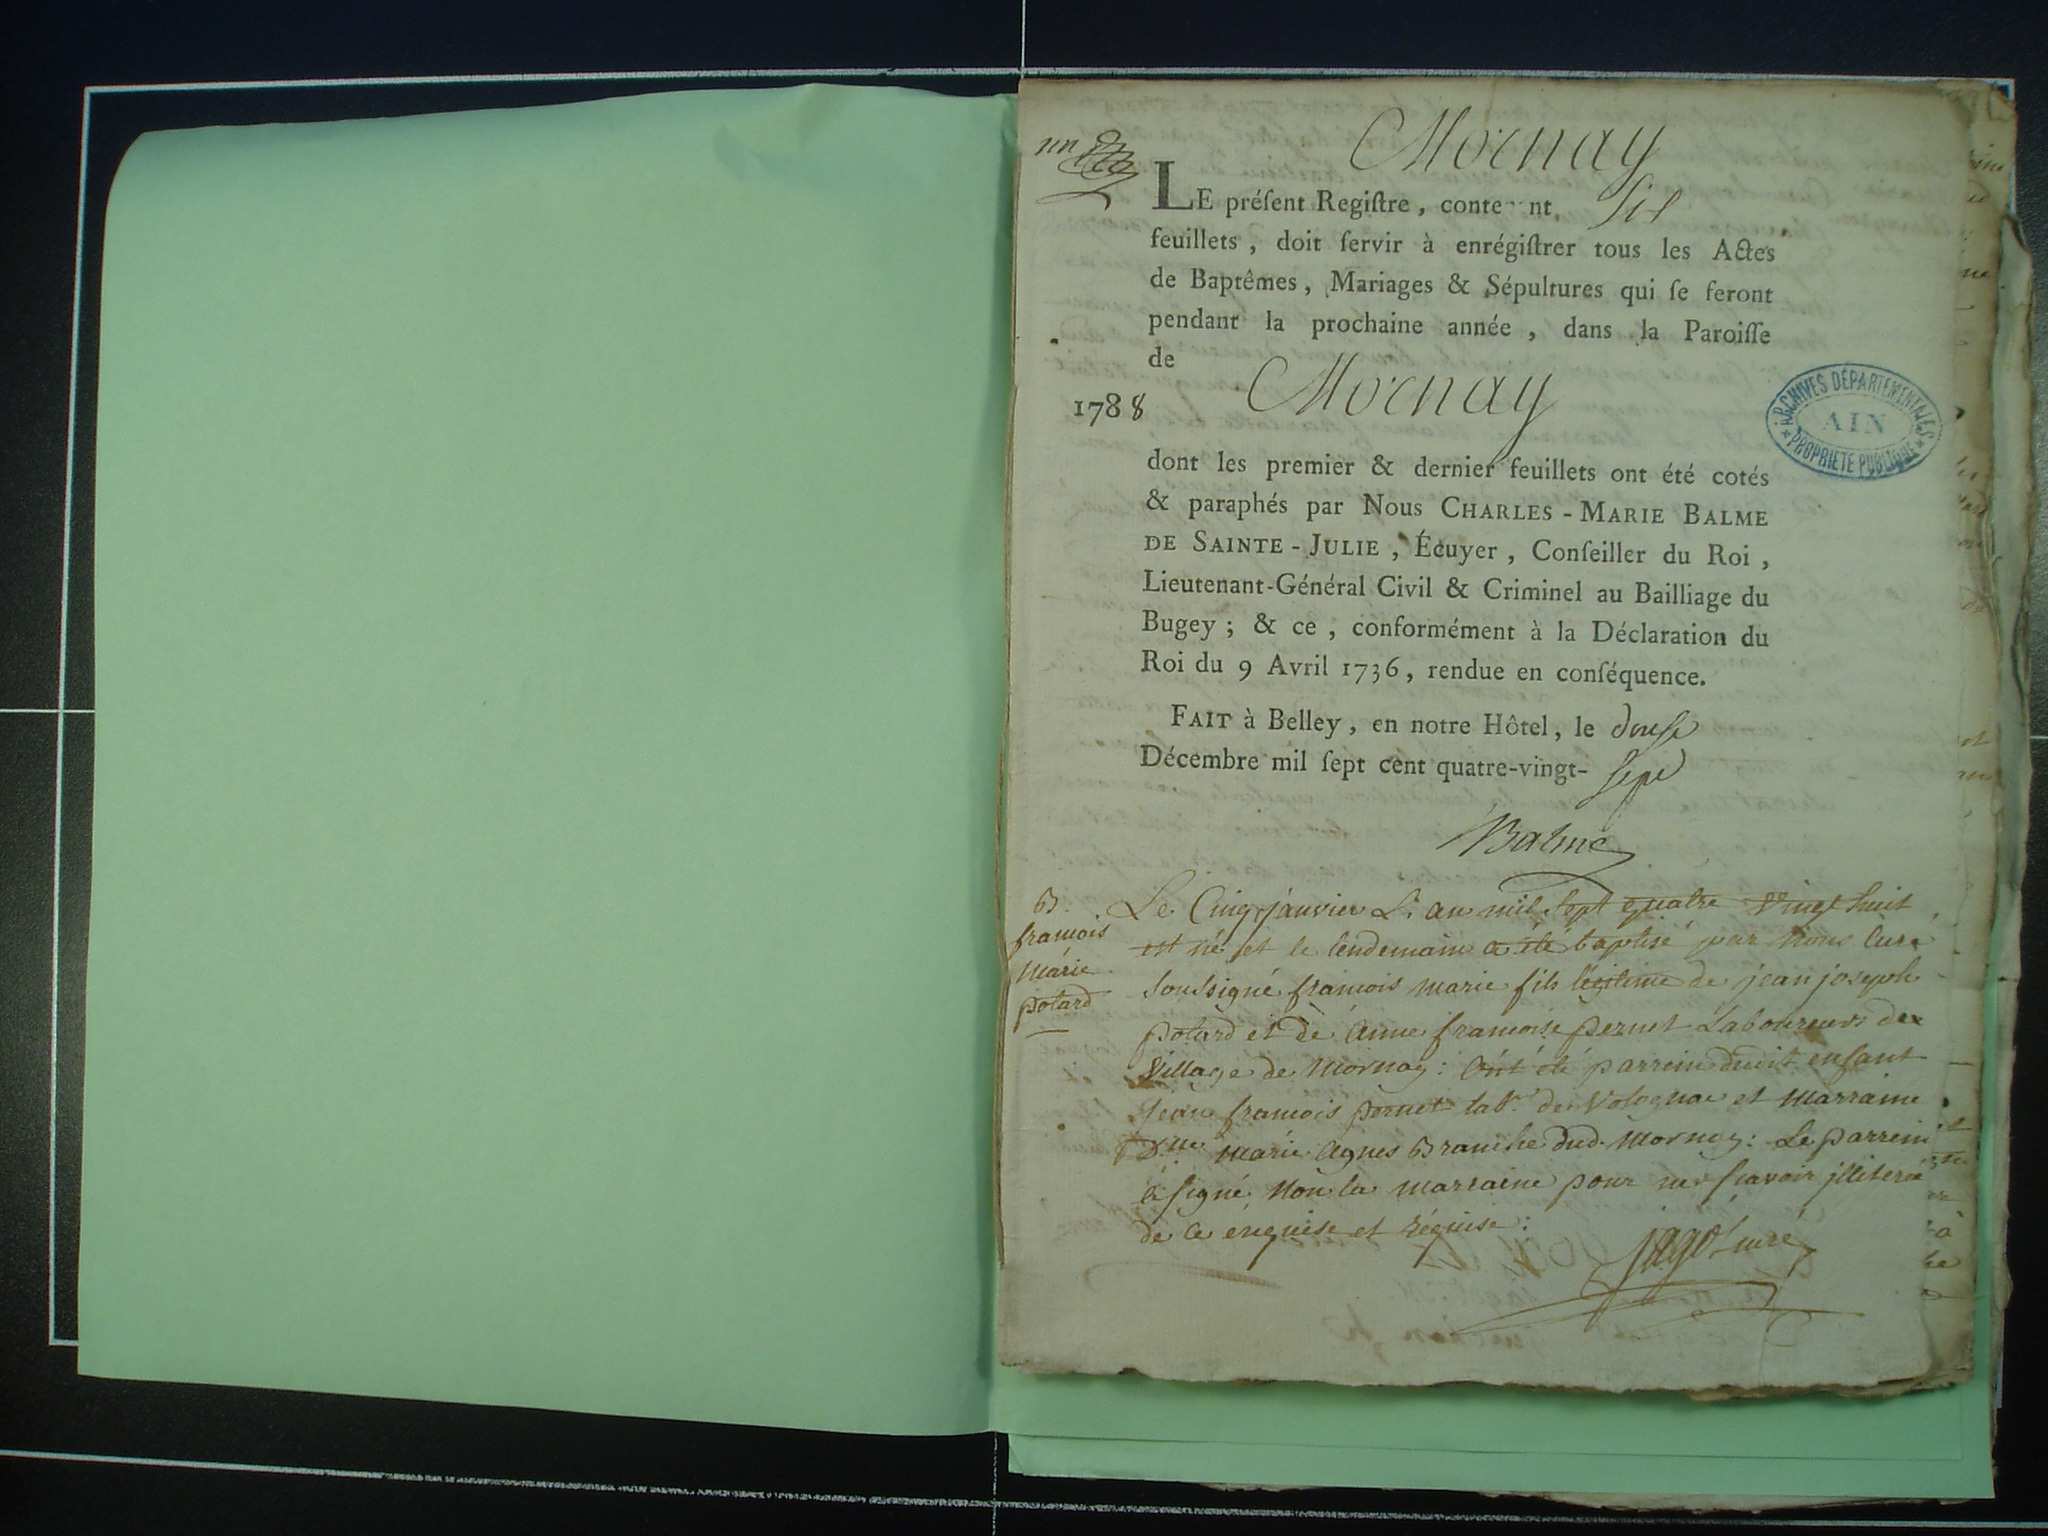 un
Mornay
LE préſent Regiſtre, contenant six
feuillets, doit ſervir à enrégiſtrer tous les Actes
de Baptêmes, Mariages & Sépultures qui ſe feront
pendant la prochaine année, dans la Paroiſſe
de
1788 Mornay
ARCHIVES DÉPARTEMENTALES
AIN
PROPRIÉTÉ PUBLIQUE
dont les premier & dernier feuillets ont été cotés
& paraphés par Nous CHARLES-MARIE BALME
DE SAINTE-JULIE, Écuyer, Conſeiller du Roi,
Lieutenant-Général Civil & Criminel au Bailliage du
Bugey; & ce, conformément à la Déclaration du
Roi du 9 Avril 1736, rendue en conſéquence.
FAIT à Belley, en notre Hôtel, le douse
Décembre mil ſept cent quatre-vingt- sept
Balme
B.
francois
marie
potard
Le Cinq janvier L'an mil sept quatre vingt huit
est né et le lendemain a été baptisé par nous Curé
soussigné francois marie fils légitime de jean joseph
potard et de anne francoise pernet Laboureurs de
village de Mornay: ont été parrein dudit enfant
jean francois pernet lab.r de Volognac et marraine
D.lle marie agnes Branche dud. Mornay: Le parrein
a signé non la marraine pour ne scavoir jlliteré
de ce enquise et réquise:
jago Curé